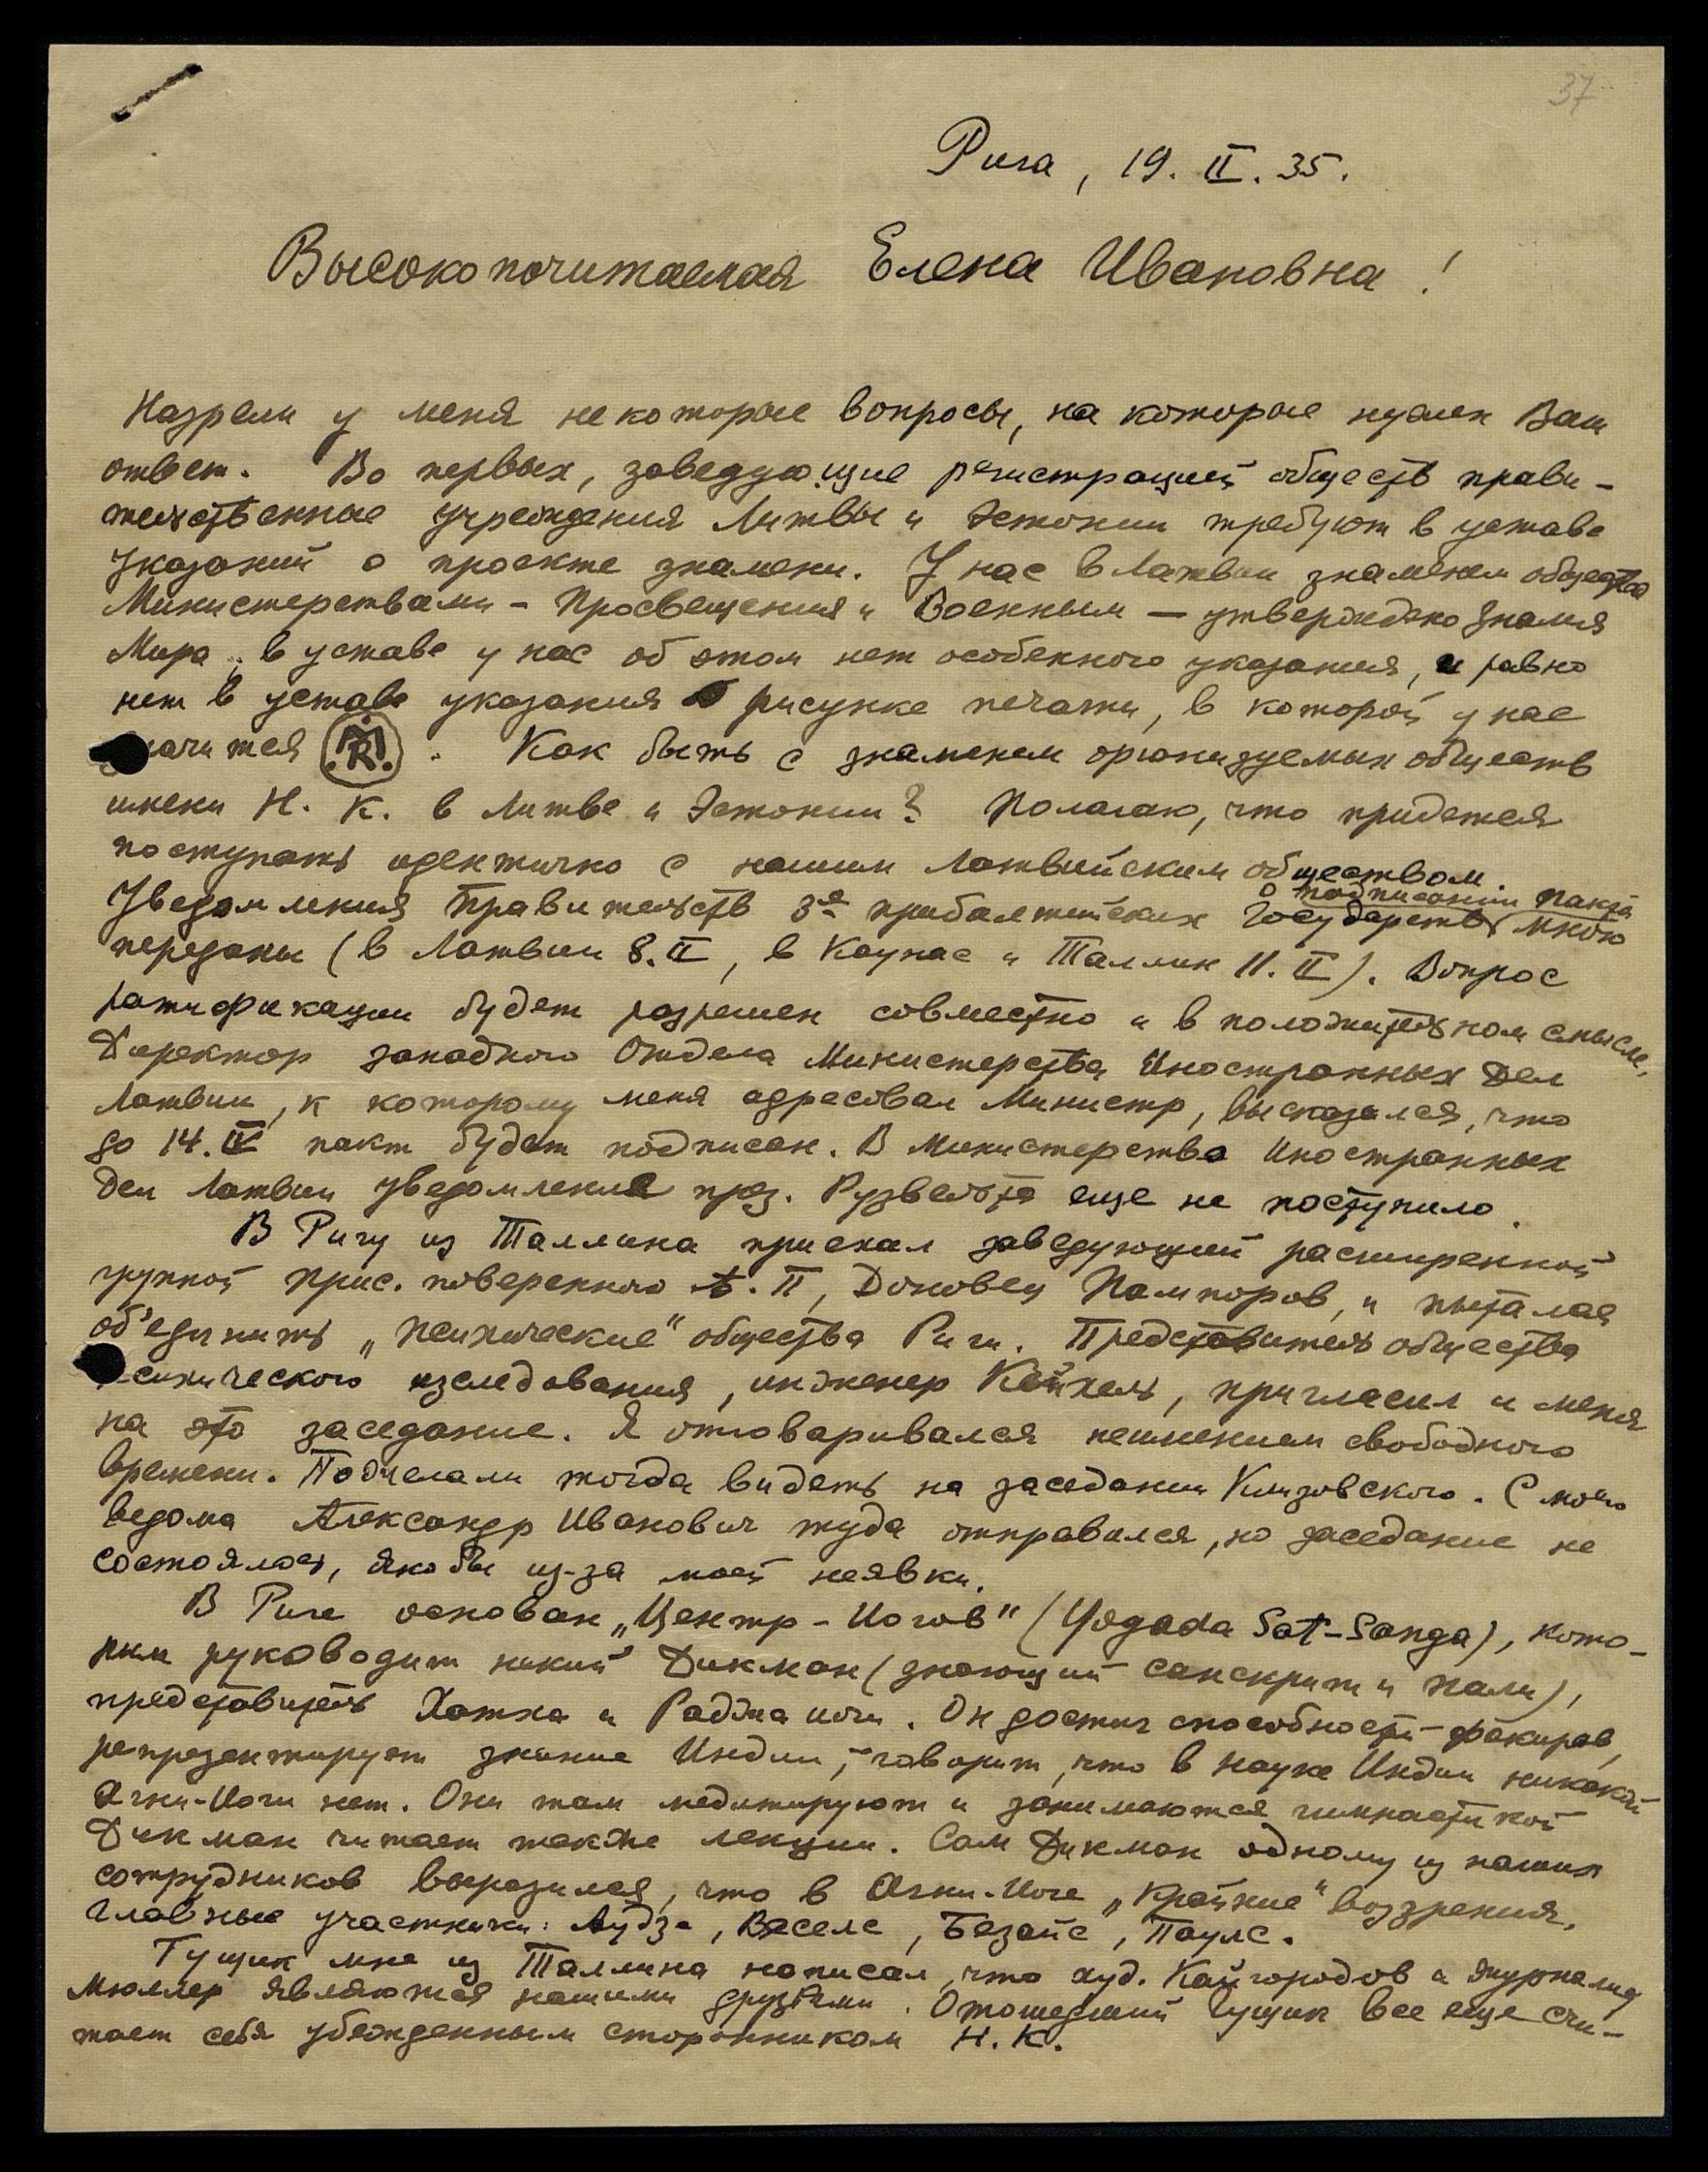 37
Рига, 19. II. 35.
Высокопочитаемая Елена Ивановна!
Назрели у меня некоторые вопросы, на которые нужен Ваш
ответ. Во первых, заведующие регистрацией обществ прави-
тельственные учреждения Литвы и Эстонии требуют в уставе
указаний о проекте знамени. У нас в Латвии знаменем общества
Министерствами - Просвещения и Военным — утверждено Знамя
Мира, в уставе у нас об этом нет особенного указания, и равно
нет в уставе указания о рисунке печати, в которой у нас
значится . Как быть с знаменем организуемых обществ
имени Н. К. в Литве и Эстонии? Полагаю, что придется
поступать идентично с нашим Латвийским обществом.
Уведомления Правительств 3-х прибалтийских Государств о подписании Пакта мною
переданы (в Латвии 8. II, в Каунас и Таллин 11. II). Вопрос
ратификации будет разрешен совместно и в положительном смысле,
Директор западного Отдела Министерства Иностранных Дел
Латвии, к которому меня адресовал Министр, высказался, что
до 14. IV пакт будет подписан. В Министерство Иностранных
Дел Латвии уведомление през. Рузвельта еще не поступило.
В Ригу из Таллина приехал заведующий расширенной
группой прис. поверенного А. П, Доновец Пампоров, и пытался
об'единить „психические" общества Риги. Представитель общества
психического изследования, инженер Кейхель, пригласил и меня
на это заседание. Я отговаривался неимением свободного
времени. Пожелали тогда видеть на заседании Клизовского. С моего
ведома Александр Иванович туда отправился, но заседание не
состоялось, якобы из-за моей неявки.
В Риге основан „Центр-Иогов" (Yogoda Sat-Sanga), кото-
рым руководит некий Дикман (знающий санскрит и пали),
представитель Хатха и Раджа иоги. Он достиг способности факиров,
репрезентирует знание Индии, говорит, что в науке Индии никакой
Агни-Иоги нет. Они там медитируют и занимаются гимнастикой
Дикман читает также лекции. Сам Дикман одному из наших
сотрудников выразился, что в Агни-Иоге „крайние" воззрения.
Главные участники: Аудзе, Веселс, Безайс, Паулс.
Гущик мне из Таллина написал, что худ. Кайгородов и журналист
Мюллер являются нашими друзьями. Отошедший Гущик все еще счи-
тает себя убежденным сторонником Н. К.